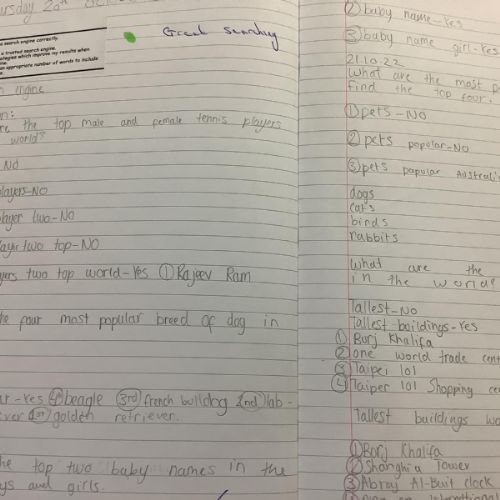 ursday 20th
search engine correctly.
a trusted search engine.
ategies which improve my results when
an appropriate number of words to include
Great searching
engine
on:
re the top male and female tennis players
world?
No
players-NO
player two-NO
layer two top-NO
yers two top world-Yes ① Rajeev Ram
he four most popular breed of dog in
ar-Yes 4 beagle 3rd french bulldog 2nd lab-
ever 1st golden retriever.
he top two baby names in the
ys and girls.
② baby name-Yes
③ baby name girl-Yes
21.10.22
What are the most p
find the top four
① pets-NO
② pets popular-NO
③ pets popular Australi
dogs
cats
birds
rabbits
What are the
in the world?
Tallest-No
Tallest buildings-Yes
① Burj Khalifa
② one world trade cent
③ Taipei 101
④ Taiper 101 Shopping cen
Tallest buildings wo
① Borj Khalifa
② Shanghia Tower
③ Abray Al-Bait clock